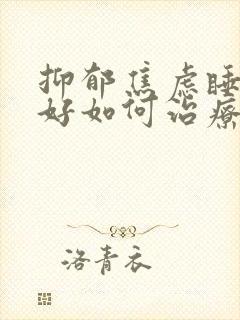 抑郁焦虑睡
好如何治疗
洛青衣